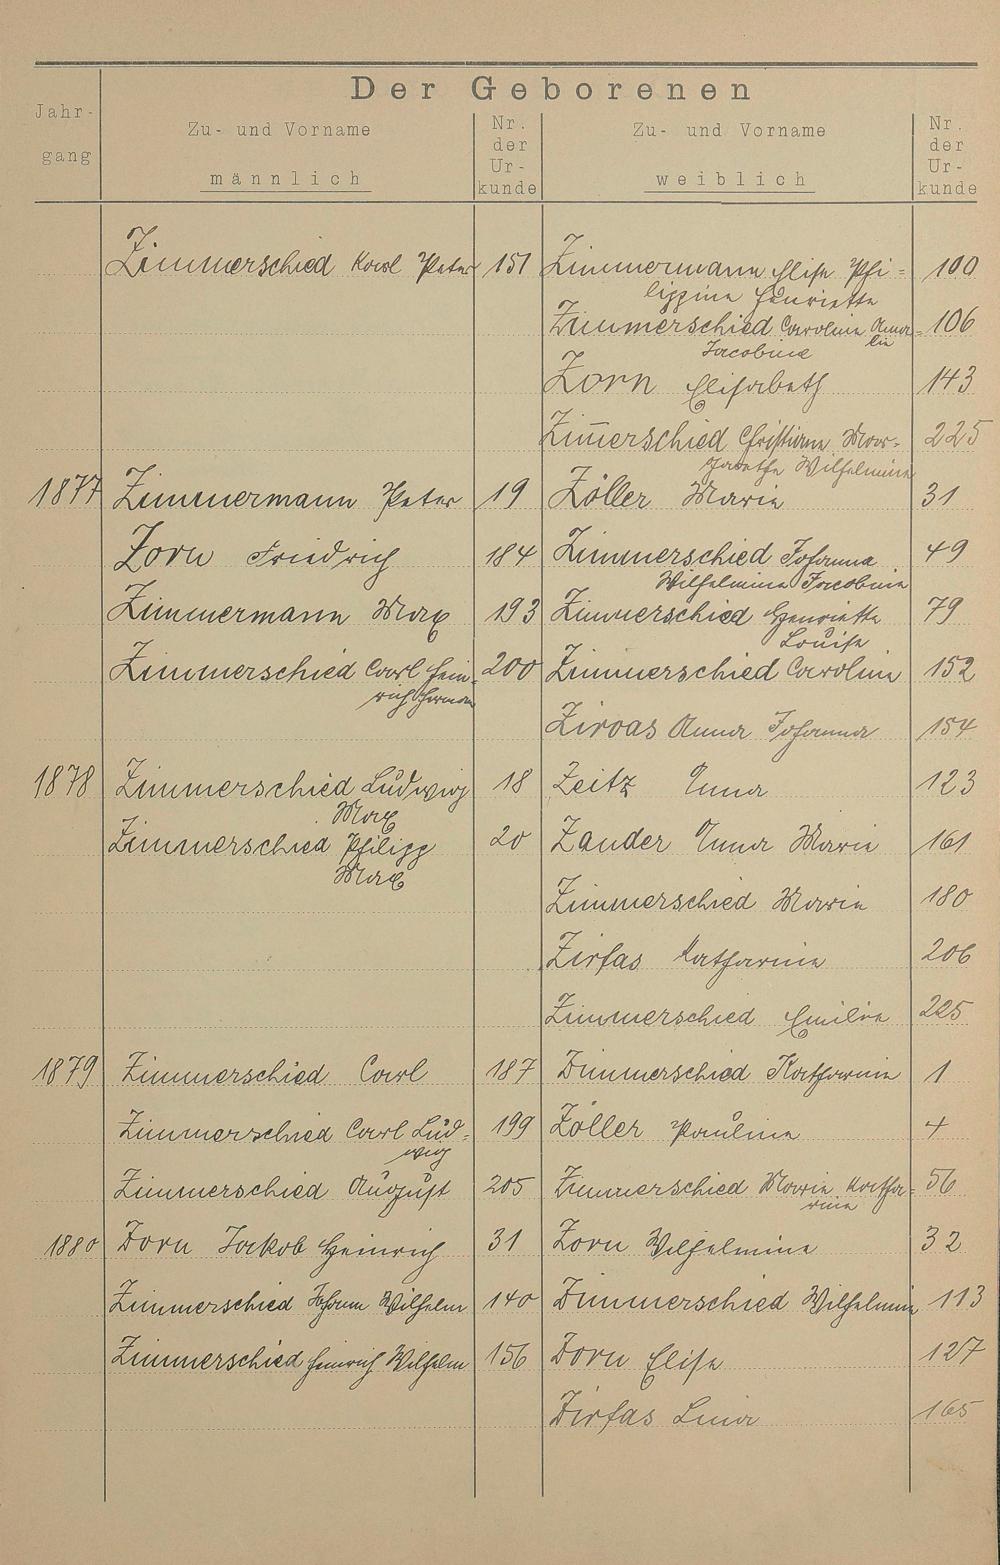 Der Geborenen
Jahr-
gang
Zu- und Vorname
männlich
Nr.
der
Ur-
kunde
Zu- und Vorname
weiblich
Nr.
der
Ur-
kunde
Zimmerschied Karl Peter 151 Zimmermann Elise Phi= 100
lippine Henriette
Zimmerschied Caroline Ama= 106
lie
Jacobine
Zorn Elisabeth 143
Zim̄erschied Christiane Mar= 225
garethe Wilhelmine
1877 Zimmermann Peter 19 Zöller Marie 31
Zorn Friedrich 184 Zimmerschied Johanna 49
Wilhelmine Jacobine
Zimmermann Max 193 Zimmerschied Henriette 79
Louise
Zimmerschied Carl Hein= 200 Zimmerschied Caroline 152
rich Herman
Ziroas Anna Johanna 154
1878 Zimmerschied Ludwig 18 Zeitz Anna 123
Max
Zimmerschied Philipp 20 Zander Anna Marie 161
Max
Zimmerschied Marie 180
Zirfas Katharine 206
Zimmerschied Emilie 225
1879 Zimmerschied Carl 187 Zimmerschied Katharine 1
Zimmerschied Carl Lud= 199 Zöller Pauline 4
wig
Zimmerschied August 205 Zimmerschied Marie Katha= 56
rine
1880 Zorn Jakob Heinrich 31 Zorn Wilhelmine 32
Zimmerschied Johann Wilhelm 140 Zimmerschied Wilhelmine 113
Zimmerschied Heinrich Wilhelm 156 Zorn Elise 127
Zirfas Lina 165